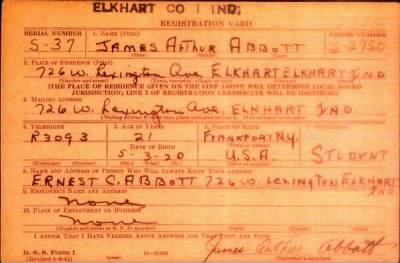 ELKHART CO 1 IND.
REGISTRATION CARD
SERIAL NUMBER 1. NAME (Print) ORDER NUMBER
S-37 JAMES ARTHUR ABBOTT S-2750
2. PLACE OF RESIDENCE (Print)
726 W. Lexington Ave ELKHART ELKHART IND
[THE PLACE OF RESIDENCE GIVEN ON THE LINE ABOVE WILL DETERMINE LOCAL BOARD
JURISDICTION; LINE 2 OF REGISTRATION CERTIFICATE WILL BE IDENTICAL]
3. MAILING ADDRESS
726 W. Lexington Ave. ELKHART IND
4. TELEPHONE 5. AGE IN YEARS 6. PLACE OF BIRTH
R3093 21 FRANKFORT N.Y.
DATE OF BIRTH
5-3-20 U.S.A STUDENT
8. NAME AND ADDRESS OF PERSON WHO WILL ALWAYS KNOW YOUR ADDRESS
ERNEST C. ABBOTT 726 W. LEXINGTON ELKHART IND
9. EMPLOYER'S NAME AND ADDRESS
None
10. PLACE OF EMPLOYMENT OR BUSINESS
None
I AFFIRM THAT I HAVE VERIFIED ABOVE ANSWERS AND THAT THEY ARE TRUE.
D. S. S. Form 1
James Arthur Abbott